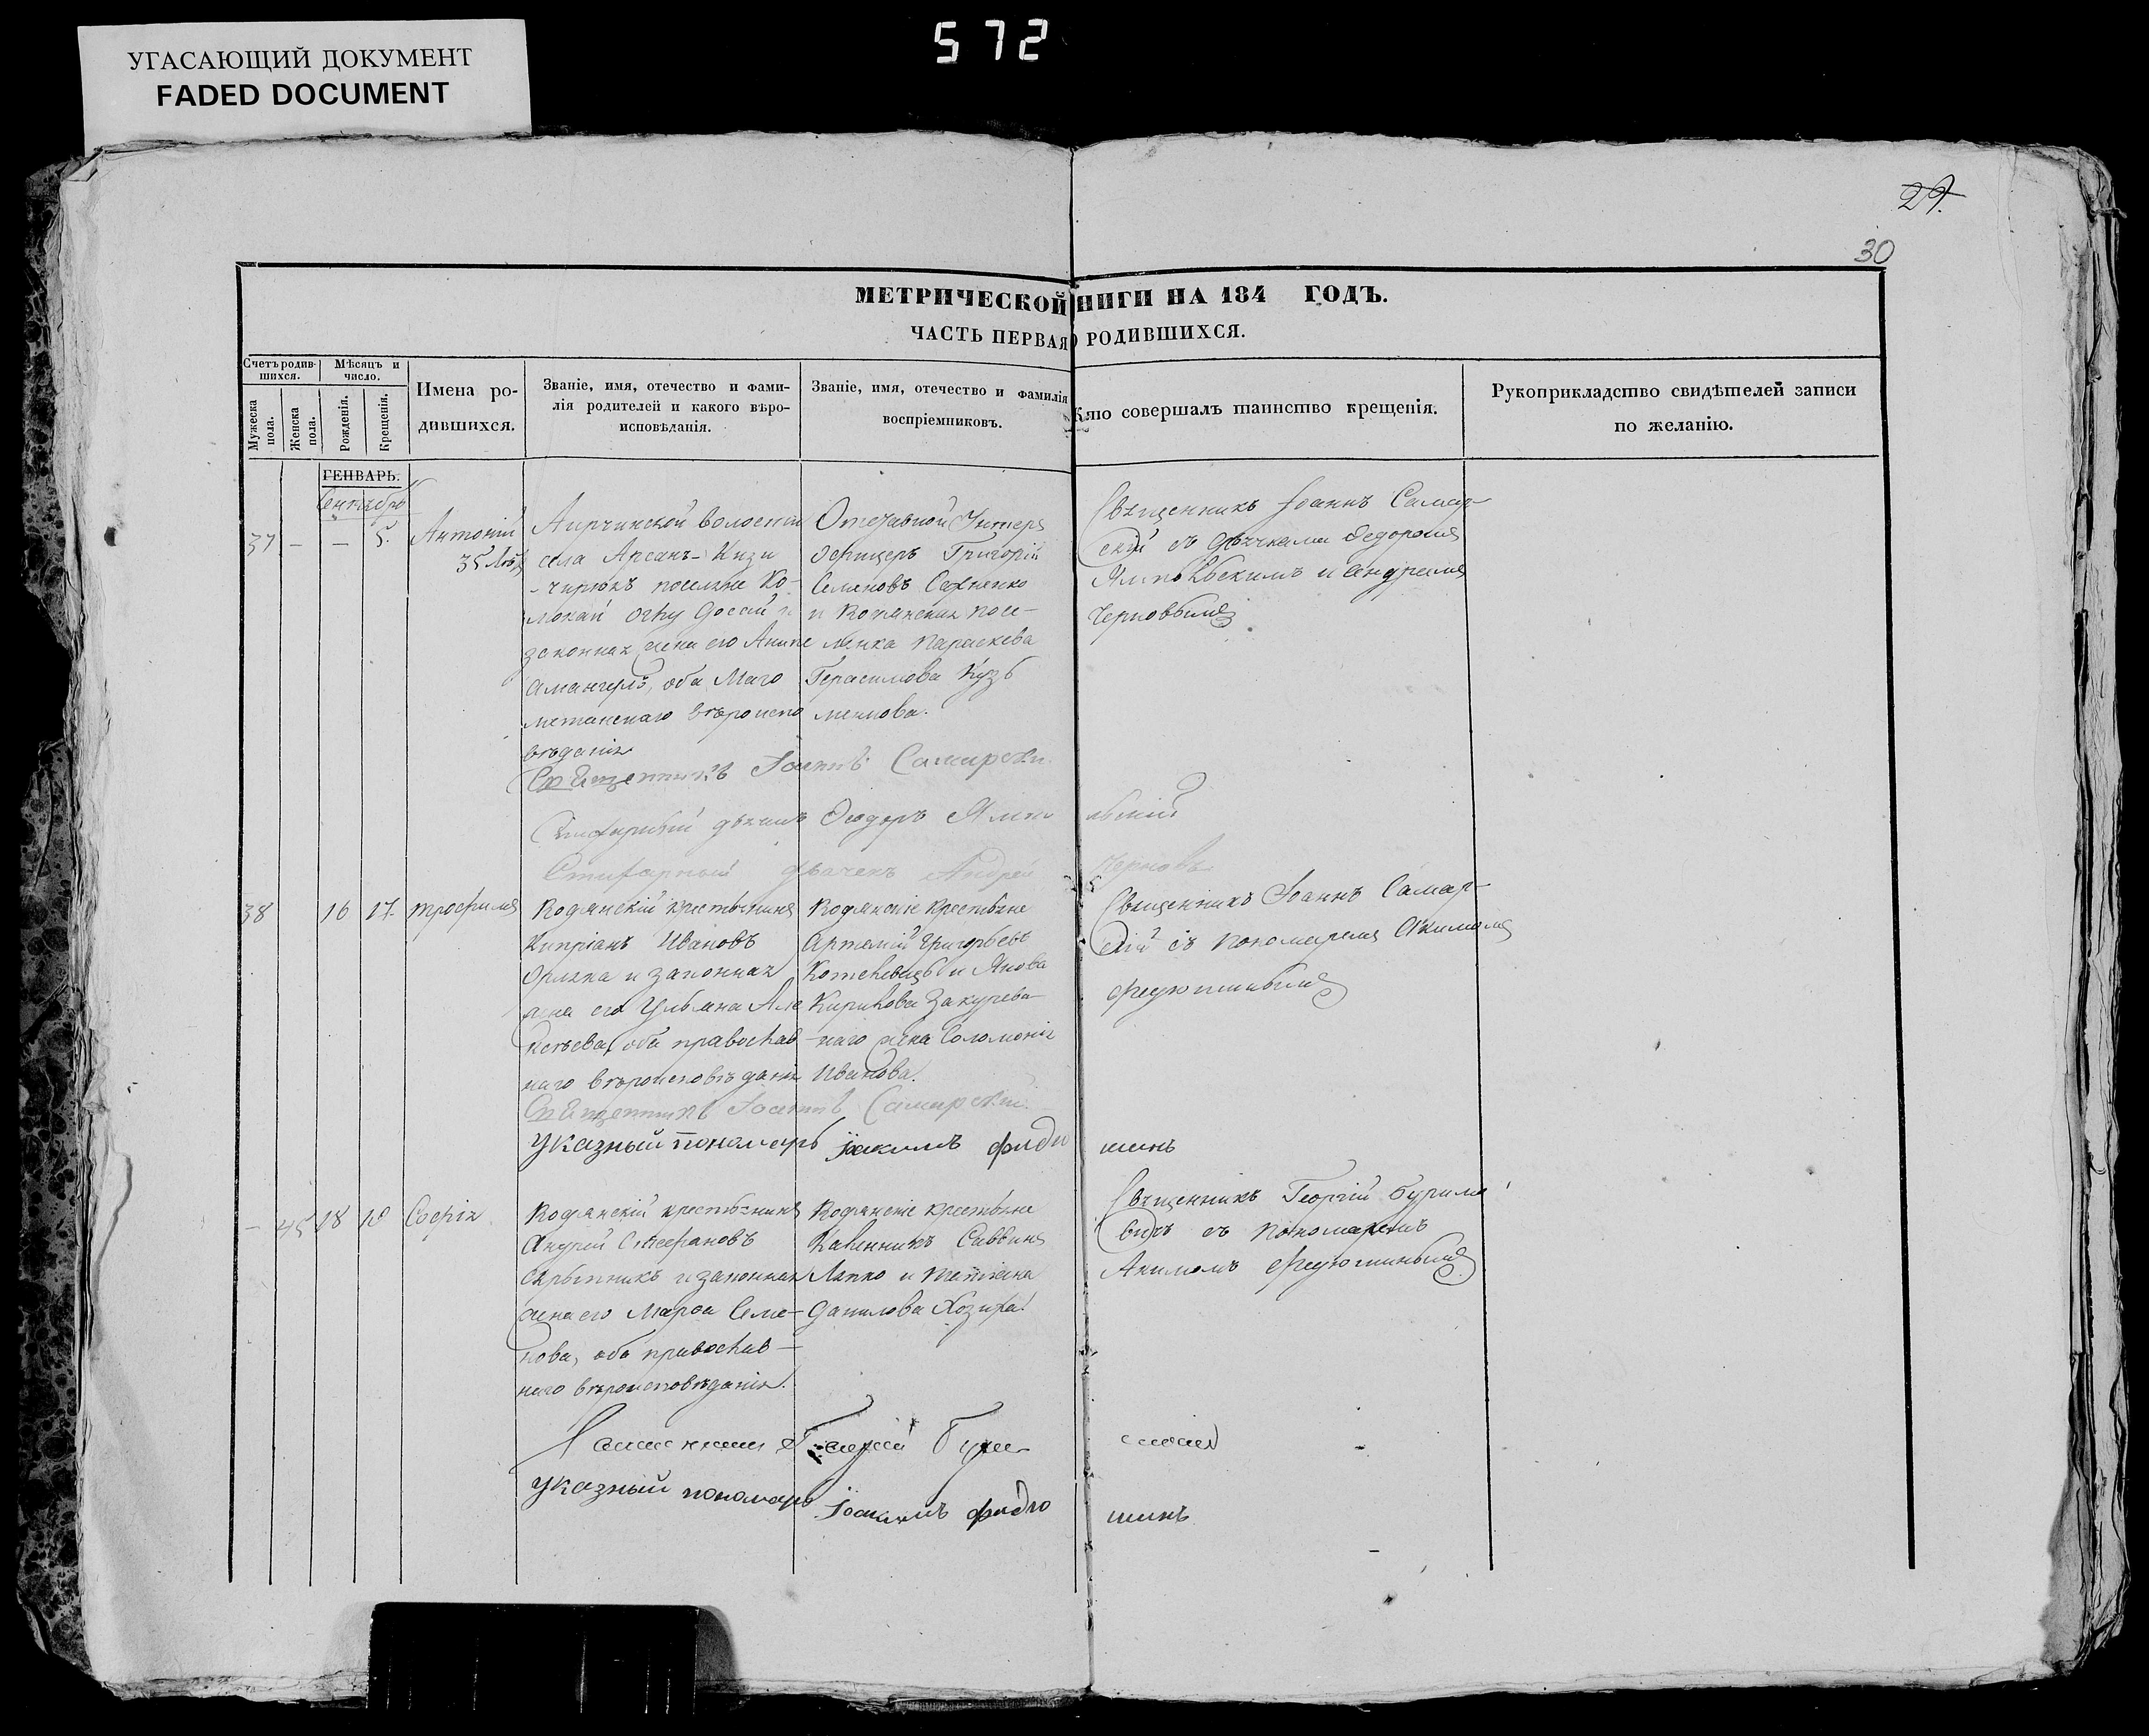 УГАСАЮЩИЙ ДОКУМЕНТ
FADED DOCUMENT
572
29.
30
МЕТРИЧЕСКОЙ НИГИ НА 184 ГОДЪ.
ЧАСТЬ ПЕРВАЯ О РОДИВШИХСЯ.
Счетъ родив-
шихся.
Мужеска
пола.
Женска
пола.
Мѣсяцъ и
число.
Рожденія.
Крещенія.
Имена ро-
дившихся.
Званіе, имя, отечество и фами-
лія родителей и какого вѣро-
исповѣданія.
Званіе, имя, отечество и фамилія
воспріемниковъ.
Кто совершалъ таинство крещенія.
Рукоприкладство свидѣтелей записи
по желанію.
ГЕНВАРЬ.
Сентябрь
37 — — 5.
Антоній
35 лѣтъ
волости
села Арсанъ-Кизи
-чирюкъ поселяне Ко-
законная жена его
оба Маго
метанскаго вѣроиспо
вѣданія
Отставной Унтеръ
офицеръ Григорій
Семеновъ
и Кодянская посе-
лянка Параскева
Герасимова Кузь
менкова.
Священникъ Іоаннъ Самар-
скій съ дьячками Федоромъ
Ямпольскимъ и Андреемъ
Черновымъ
Священникъ Іоаннъ Самарскій
дьячекъ Федоръ Ямпольскій
дьячекъ Андрей Черновъ
38 16 17. Трофимъ
Кодянскій крестьянинъ
Кипріанъ Ивановъ
Орлика и законная
жена его Ульяна Але
ксѣева, оба православ
наго вѣроисповѣданія
Кодянскіе крестьяне
Артемій Григорьевъ
и Якова
Кирикова Закурева-
-наго жена Соломонія
Иванова.
Священникъ Іоаннъ Самар-
скій съ пономаремъ Акимомъ
Федюшинымъ
Священникъ Іоаннъ Самарскій.
Указный пономарь Іоакимъ Федюшинъ
— 45 18 18 Софія
Кодянскій крестьянинъ
Андрей Стефановъ
Скрыпникъ и законная
жена его Марфа Семе-
нова, оба православ-
наго вѣроисповѣданія.
Кодянскіе крестьяне
Савина
Ляпко и Татіана
Данилова
Священникъ Георгій Бурима
вичъ съ пономаремъ
Акимомъ Федюшинымъ
Священникъ Георгій
Указный пономарь Іоакимъ Федюшинъ